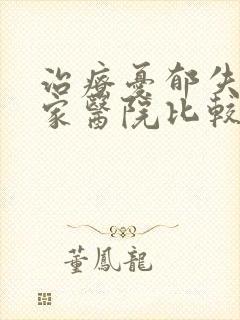 治療憂郁失
家醫院比較
董鳳龍